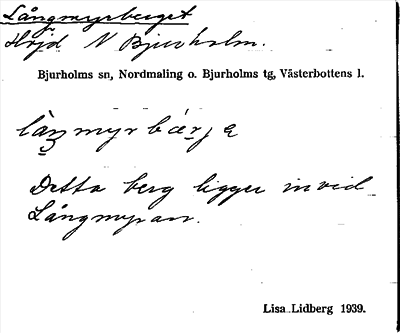 Långmyrberget
Höjd N Bjurholm.
Bjurholms sn, Nordmaling o. Bjurholms tg, Västerbottens l.
Detta berg ligger invid
Långmyran.
Lisa Lidberg 1939.